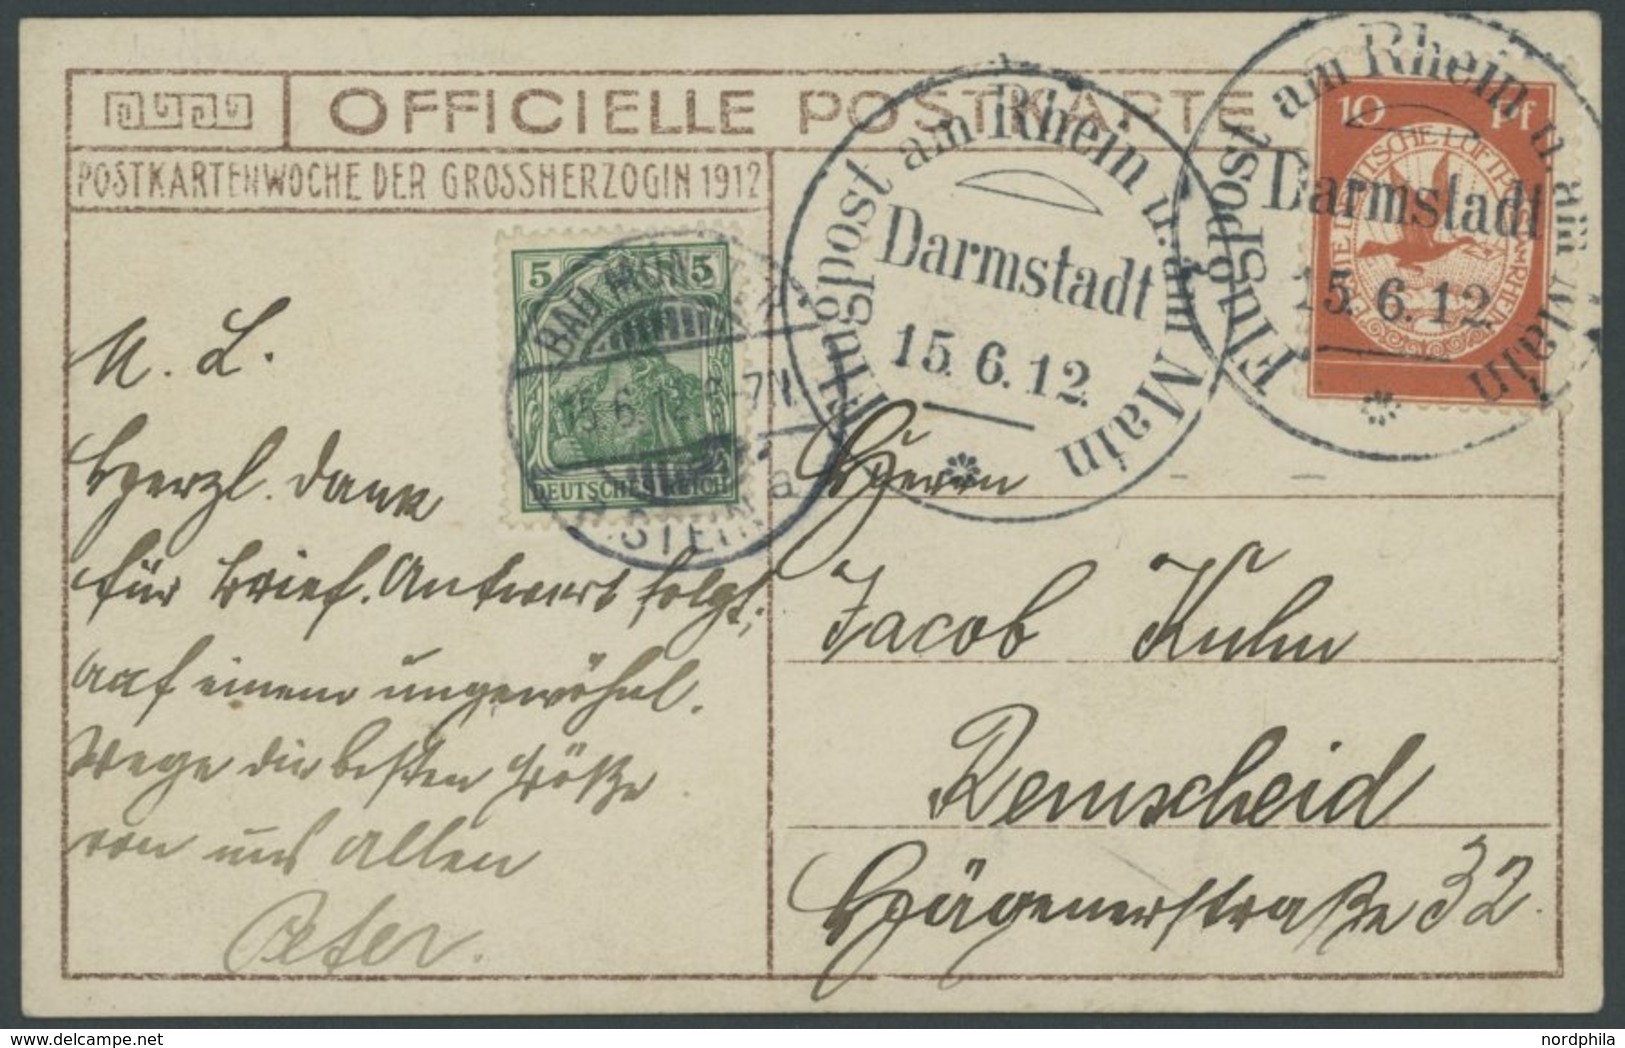 OFFICIELLE POSTKARTE
POSTKARTENWOCHE DER GROSSHERZOGIN 1912
Flugpost am Rhein u. am Main
Darmstadt
15.6.12.
Flugpost am Rhein u. am Main
Darmstadt
15.6.12.
10 Pf
5 5
DEUTSCHES REICH
BAD MÜNSTER
15.6.12. 6-7N.
a. STEIN a
M. L.
Herzl. Dank
für Brief. Antwort folgt.
Auf einem ungewöhnl.
Wege die besten Grüße
von uns allen
Peter.
Herrn
Jacob Kuhn
Remscheid
Hägenerstraße 32.
nordphila